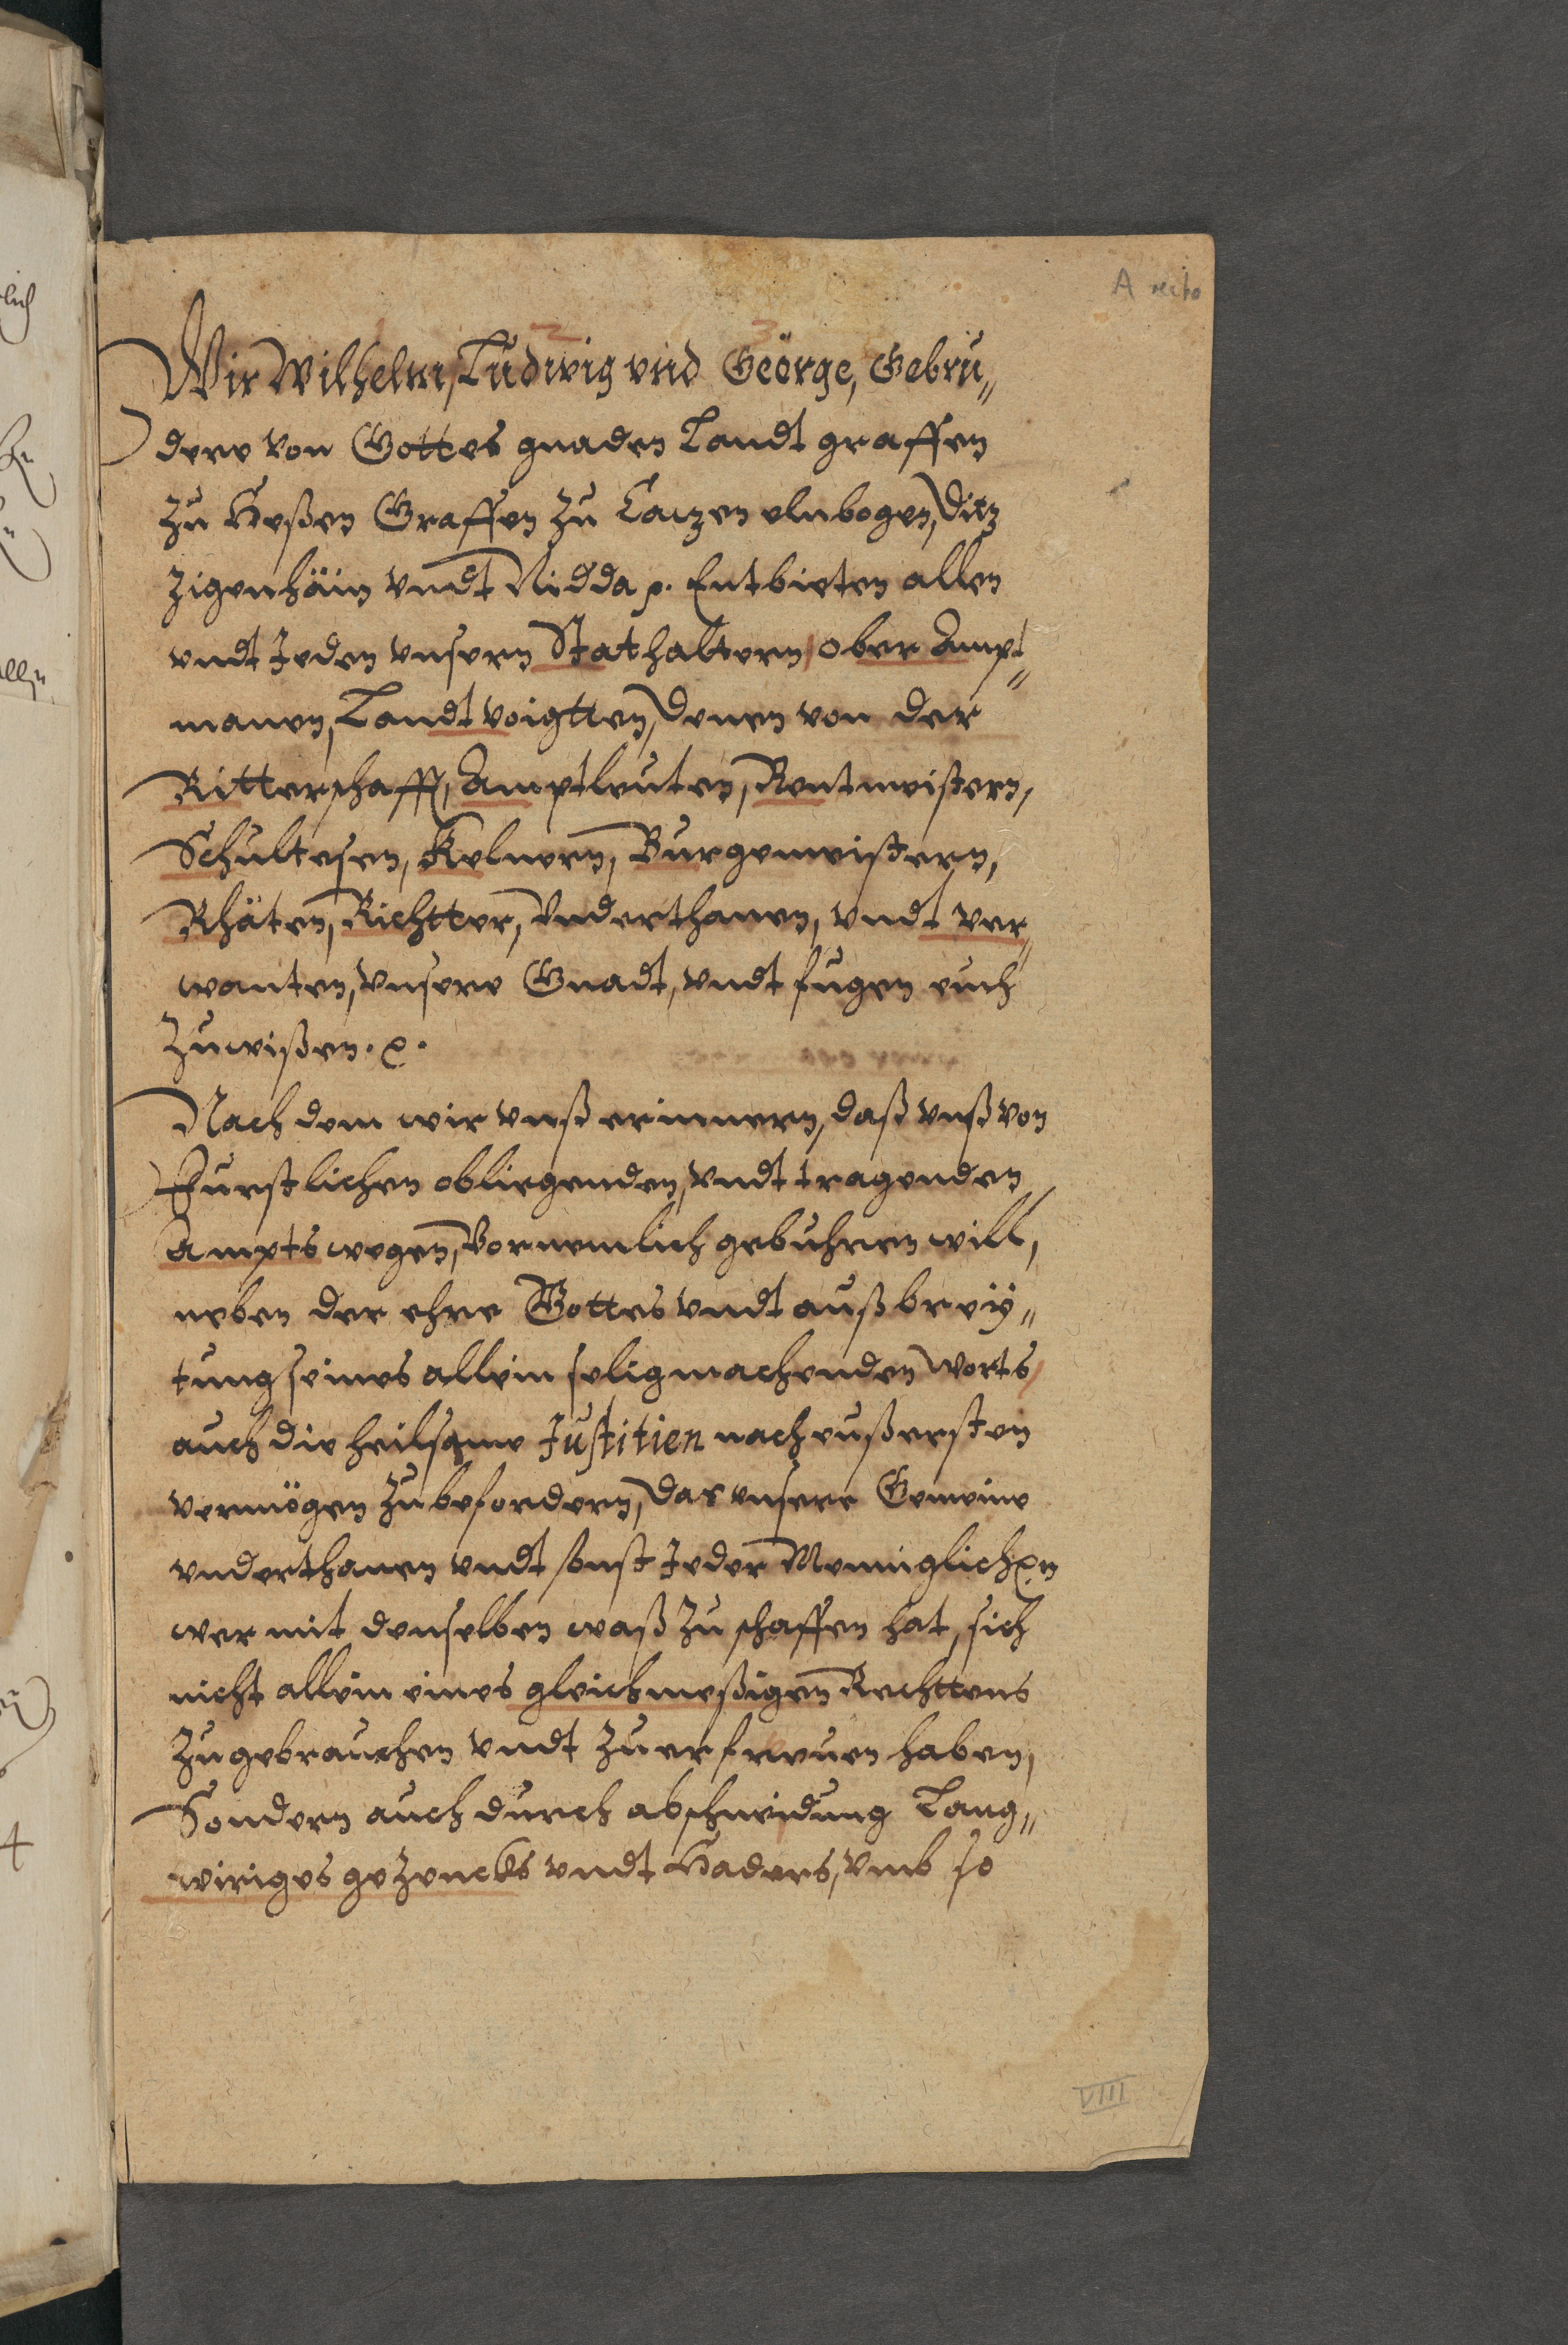 A recto
1 2 3
Wir Wilhelm, Ludwig vnd Geörge, Gebru„
dere von Gottes gnaden Landt graffen
zu Heßen Graffen zu Caczen elnbogen, Ditz
Zigenhäin vndt Nidda p. Entbieten allen
vndt Jeden vnsern Stathaltern, ober Ampt„
manen, Landt voigtten, denen von der
Ritterschafft, Amptleuten, Rentmeistern,
Schultesen, Kelnern, Burgemeistern,
Rhäten, Richtter, Vnderthanen, vndt ver„
wanten, vnsere Gnadt, vndt fugen euch
Zuwißen. p.
Nach dem wir vnß erinnern, daß vnß von
Furstlichen obliegenden, vndt tragenden
Ampts wegen, Vornemlich gebuhren will,
neben der ehre Gottes vndt außbreÿ„
tung seines allein seligmachenden Worts,
auch die heilsame Justitien nach eußersten
vermögen zu befordern, das vnsere Gemeine
vnderthanen vndt sonst Jeder Menniglichen
wer mit denselben waß zu schaffen hat, sich
nicht allein eines gleichmeßigen Rechttens
zu gebrauchen vndt zu erfreuen haben,
Sondern auch durch abschneidung Lang„
wiriges gezencks vndt Haders, vmb so
VIII